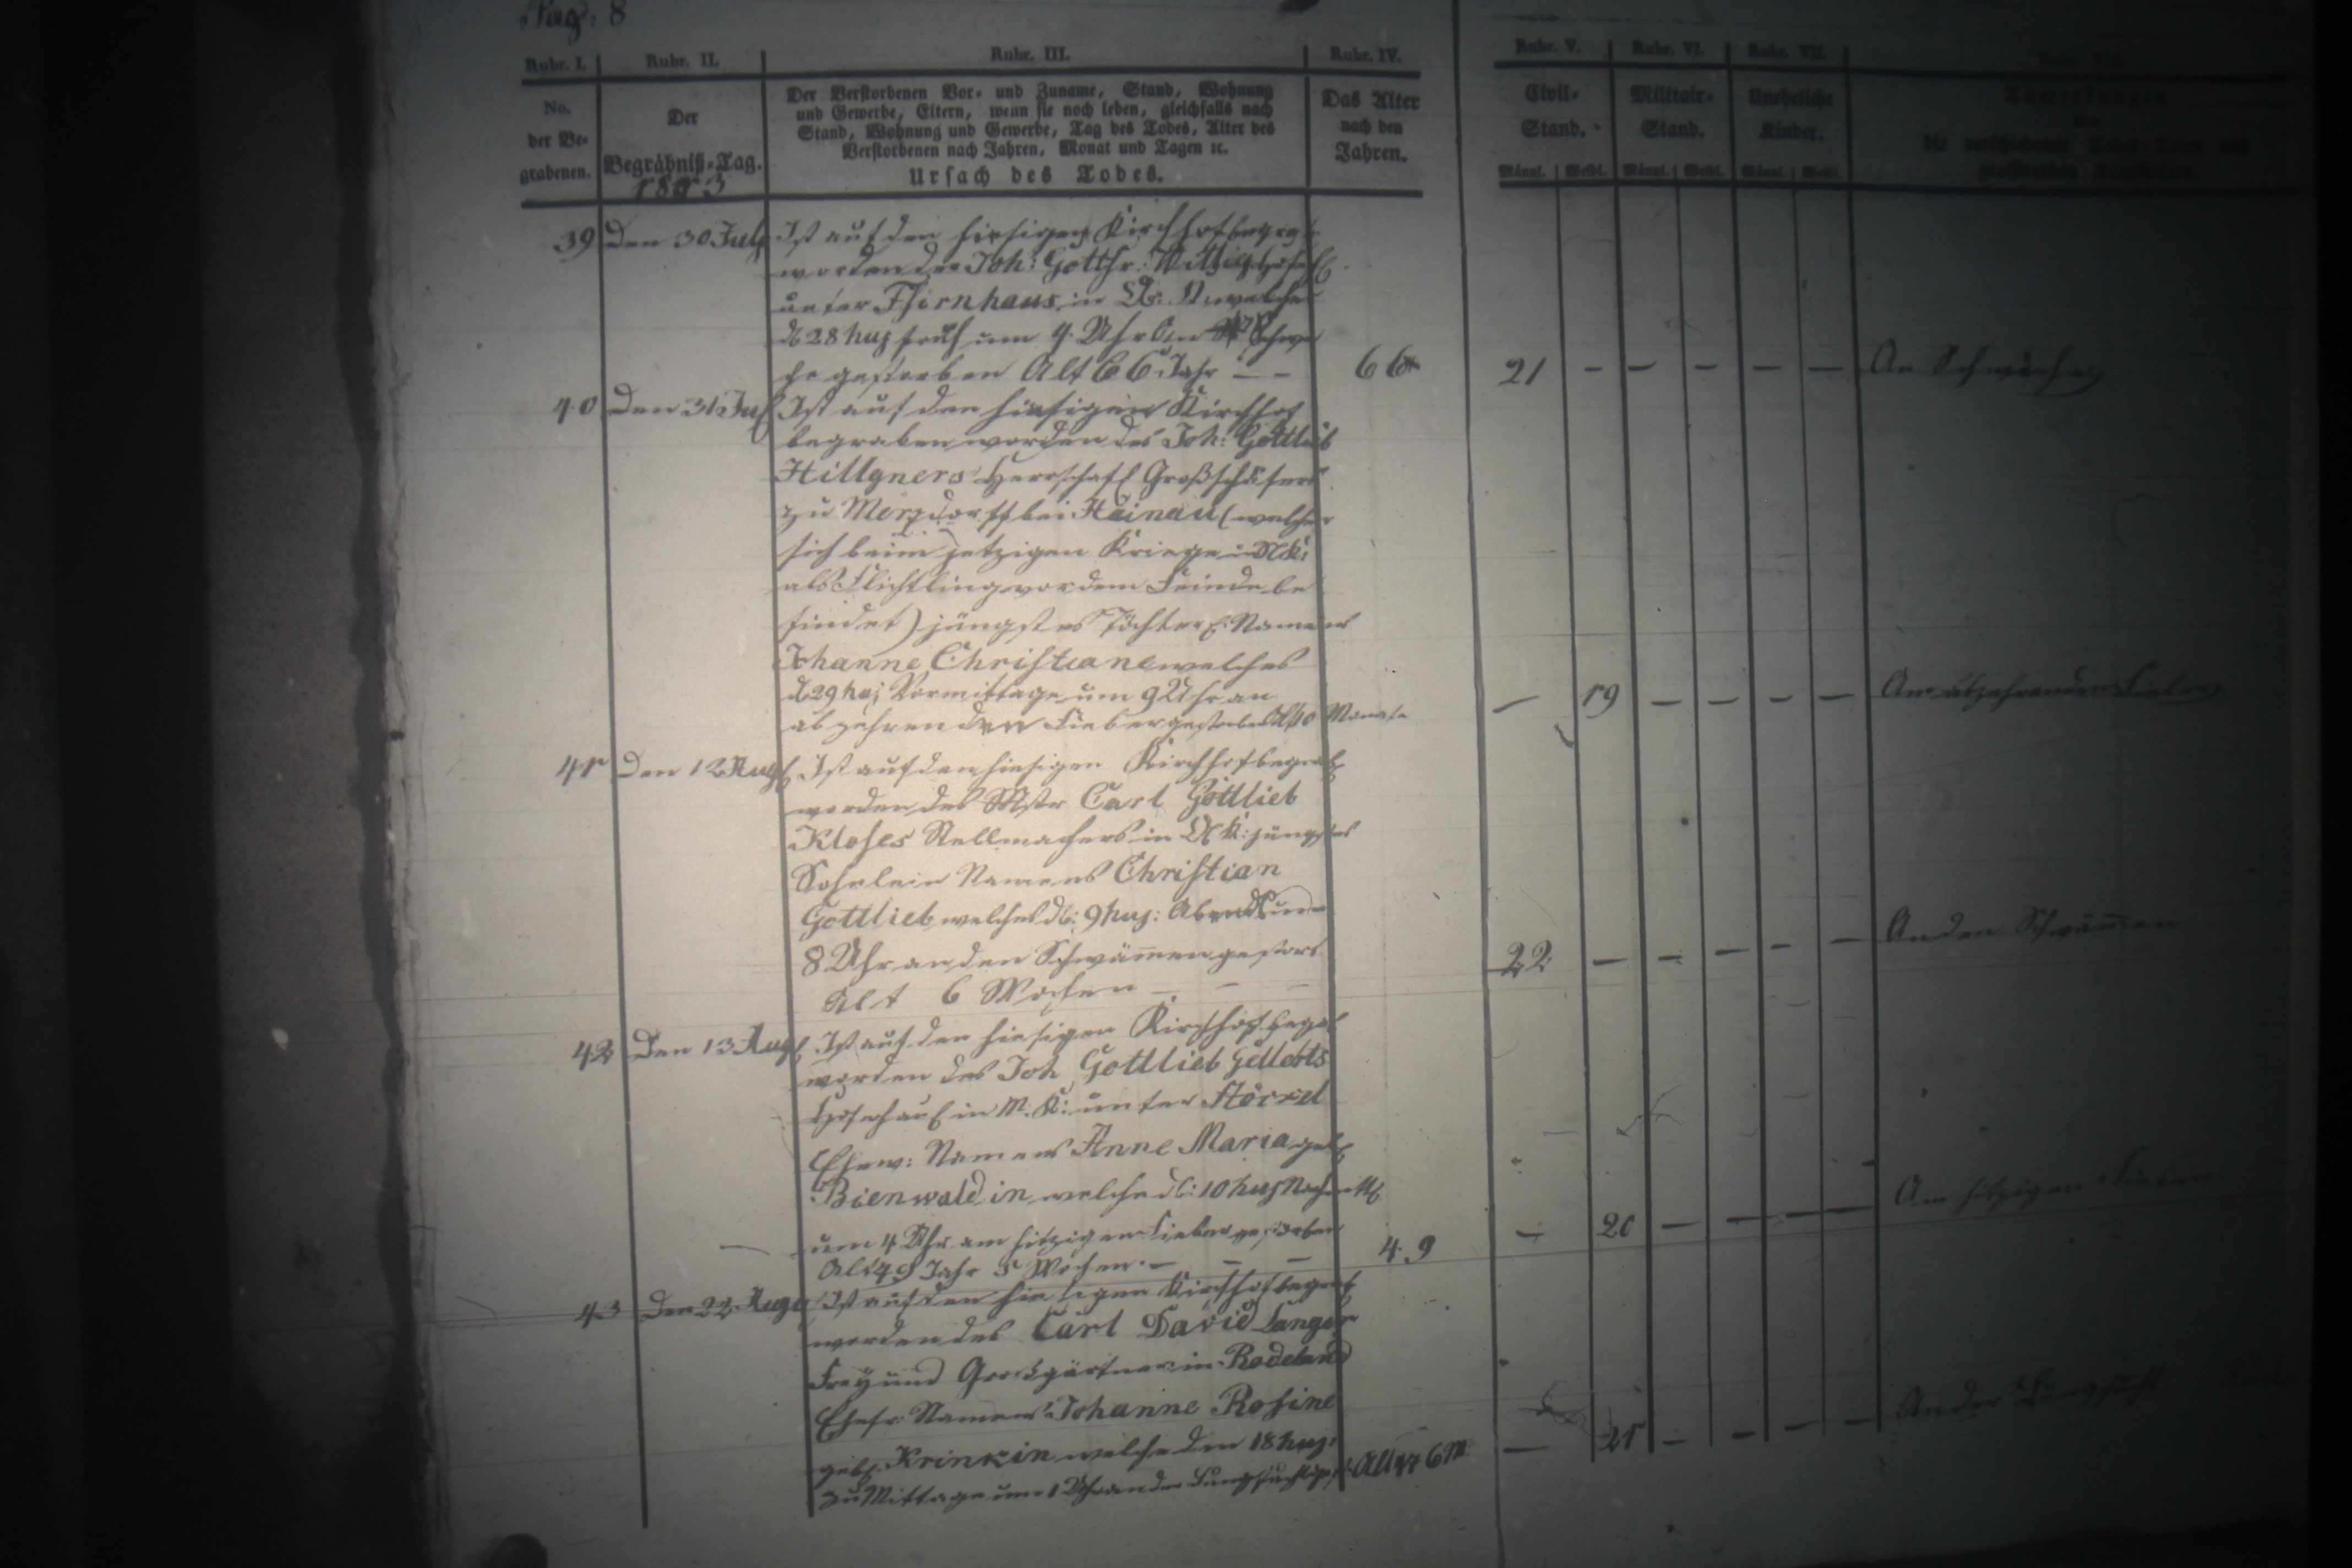 Pag: 8
Rubr. I. Rubr. II. Rubr. III. Rubr. IV. Rubr. V. Rubr. VI. Rubr. VII.
No. der Begrabenen.
Der Begräbniß-Tag.
1813
Der Verstorbenen Vor- und Zuname, Stand, Wohnung
und Gewerbe, Eltern, wenn sie noch leben, gleichfalls nach
Stand, Wohnung und Gewerbe, Tag des Todes, Alter des
Verstorbenen nach Jahren, Monat und Tagen ec.
Ursach des Todes.
Das Alter
nach den
Jahren.
Civil-
Stand.
Militair-
Stand.
Uneheliche
Kinder.
Anmerkungen
über
die verschiedenen Todes-Arten und
grassirenden Krankheiten.
Männl. Weibl. Männl. Weibl. Männl. Weibl.
39 den 30 July Ist auf den hiesigen Kirchhof begra
worden der Joh: Gottfr:
unter in welcher
d 28 huj früh um 4 Uhr an Schwä
che gestorben Alt 66 Jahr — —
66 21 — — — — — An Schwäche
40 den 31 Jul Ist auf den hiesigen Kirchhof
begraben worden des Joh: Gottlieb
Hillgners Herrschaftl Großschäfers
zu Merzdorff bei Hainau (welcher
sich beim jetzigen Kriege in
als Flichtling vor dem Feinde be
findet) jüngstes Töchterl: Namens
Johanne Christiane welches
d 29 huj Vormittage um 9 Uhr an
abzehrenden Fieber gestorben Alt 10 Monate
— 19 — — — — Am abzehrenden Fieber
41 den 12 Aug Ist auf den hiesigen Kirchhof begrab
worden des Mstr Carl Gottlieb
Kloses Stellmachers in jüngstes
Sohnlein Namens Christian
Gottlieb welches d: 9 huj: Abends um
8 Uhr an den Schwämen gestorb
Alt 6 Wochen — — —
22 — — — — — An den Schwämen
42 Den 13 Aug Ist auf den hiesigen Kirchhof begra
worden des Joh Gottlieb Gellerts
in M. K: unter
Ehew: Namens Anne Maria geb
Bienwaldin welche d: 10 huj Nachmitt
um 4 Uhr am hitzigen Fieber gestorben
Alt 49 Jahr 5 Wochen. — — —
49 — 20 — — — — Am hitzigen Fieber
43 Den 22 Aug Ist auf den hiesigen Kirchhof begrab
worden des Carl David Langer
Frey und Großgärtner in Rodeland
Ehefr: Namens Johanne Rosine
geb. Krinkin welche den 18 huj:
zu Mittage um 1 Uhr an der Lungsucht
Alt 47 6 M — 21 — — — — An der Lungsucht